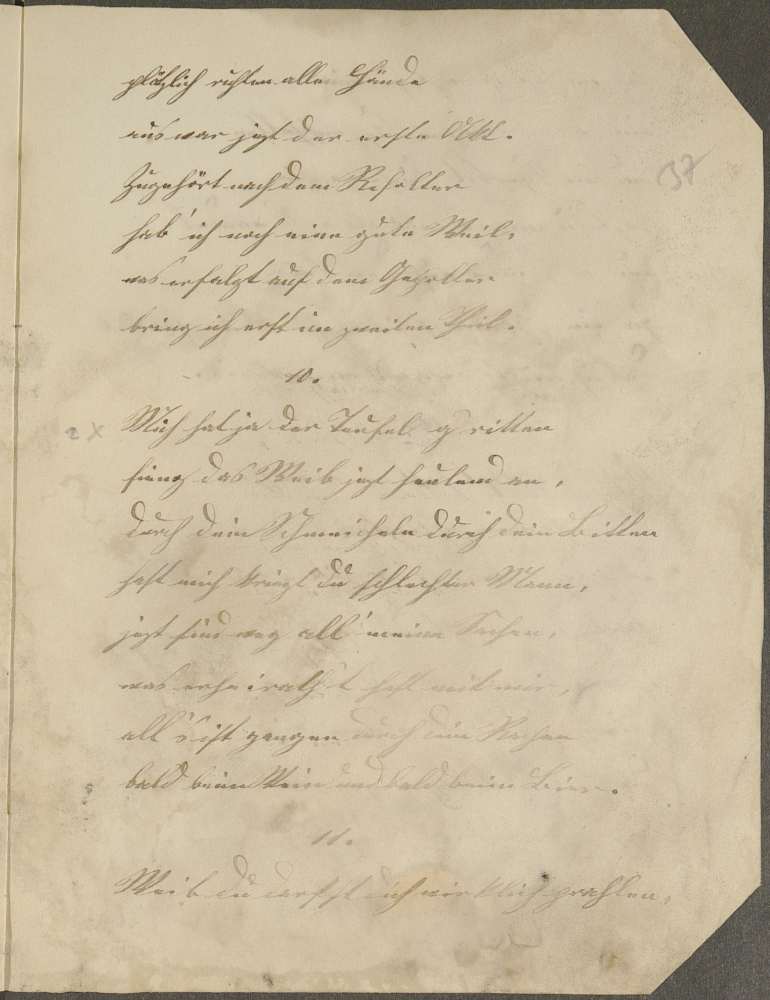 plötzlich ruhten alle Hände
aus war jezt der erste Akt.
Zugehört nach dem
hab' ich noch eine gute Weil,
was erfolgt auf dem
bring ich erst im zweiten Theil.
37
10.
Mich hat ja der Teufel g'ritten
fieng das Weib jezt heulend an,
durch dein Schmeicheln durch dein Bitten
hast mich kriegt du schlechter Mann,
jezt sind weg all' meine Sachen,
was erheirath't hast mit mir,
all's ist gangen durch dein Rachen
bald beim Wein und bald beim Bier.
11.
Weib du darfst dich wirklich prahlen,